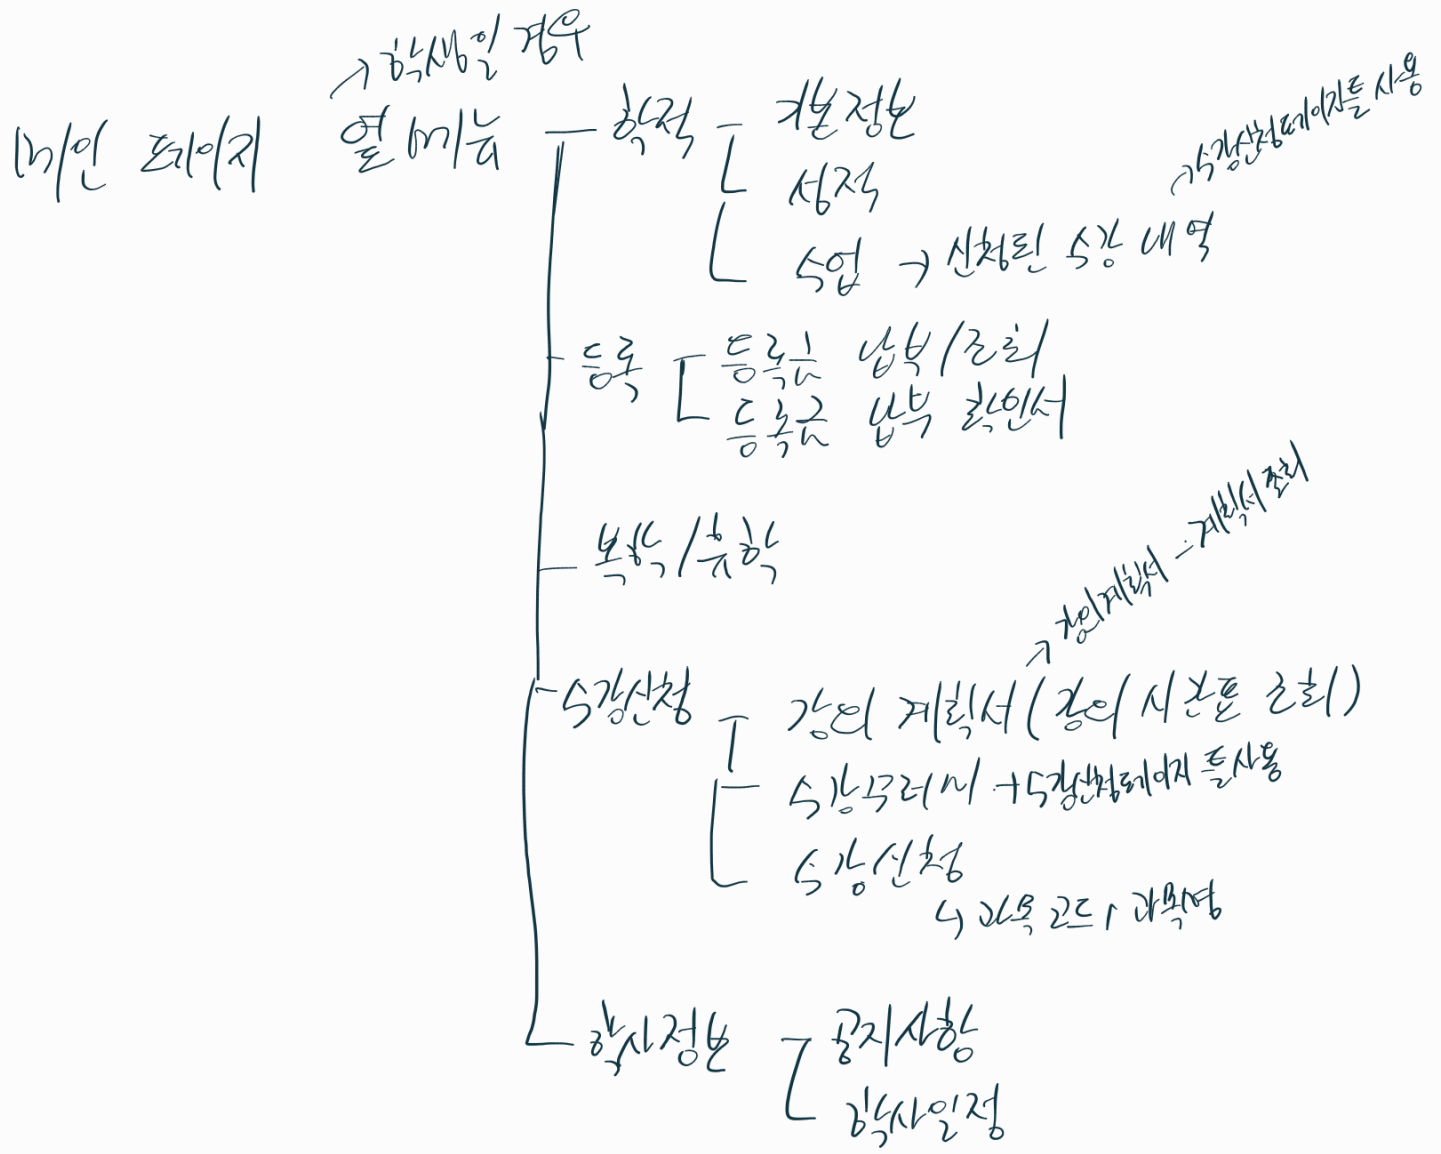 → 학생일 경우
메인 페이지 열 메뉴
학적
기본정보
성적
수업 → 신청된 수강 내역
→ 수강신청페이지틀 사용
등록
등록금 납부/조회
등록금 납부 확인서
복학/휴학
수강신청
강의 계획서 (강의 시간표 조회)
→ 강의계획서 - 계획서 조회
수강꾸러미 → 수강신청페이지 틀 사용
수강신청
↳ 과목 코드, 과목명
학사정보
공지사항
학사일정